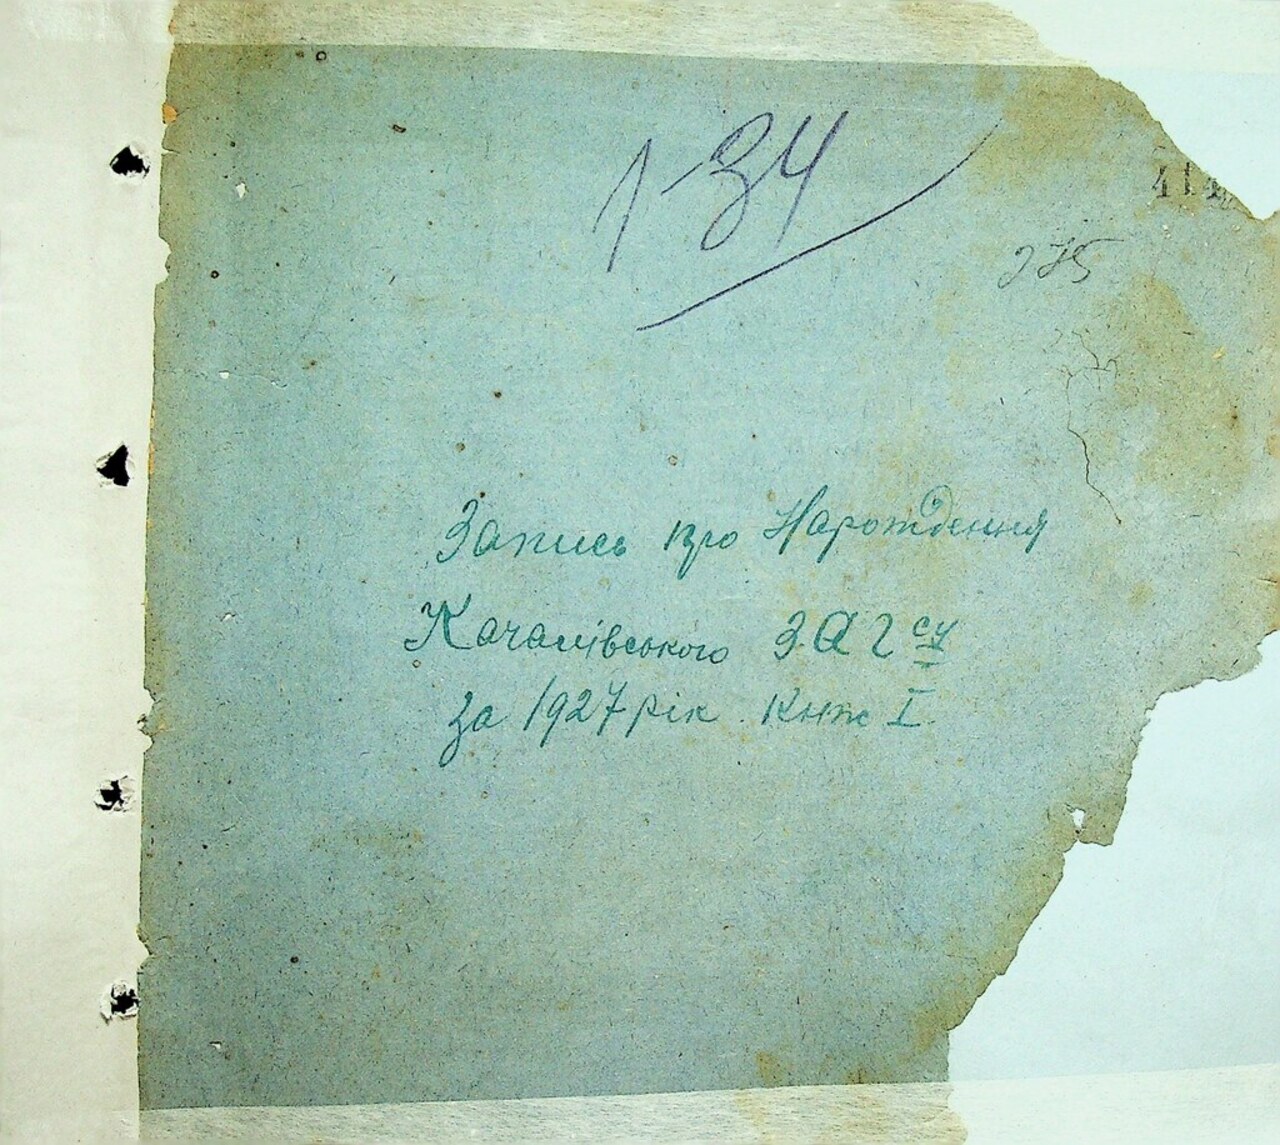 1-34
414
275
Запись про Нарождення
Качалівського ЗАГсу
за 1927 рік Книж I